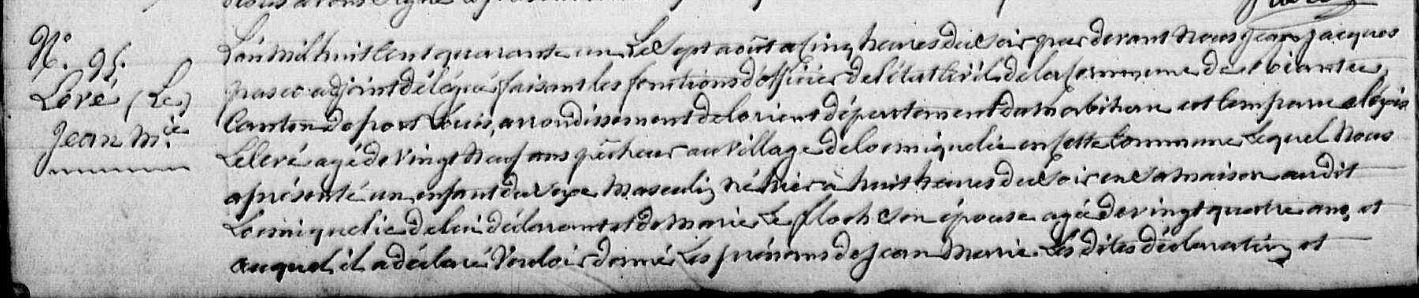 N.° 95.
Levé (Le)
Jean M.ie
L'an mil huit cent quarante un Le Sept août a cinq heures du Soir par devant Nous Jean Jacques
adjoint délégué faisant les fonctions d'officier de l'état Civil de la Commune de Riantec,
Canton de port Louis, arrondissement de lorient département du Morbihan est Comparu
Le Levé agé de vingt Neuf ans pêcheur au village de Locmiquelic en cette Commune Lequel Nous
a présenté un enfant du Sexe Masculin Né hier à huit heures du Soir en Sa maison au dit
Locmiquelic de lui déclarant et de Marie Le floch Son épouse agée de vingt quatre ans, et
auquel il a déclaré Vouloir donner Les prénoms de Jean Marie. Les dites déclaration et